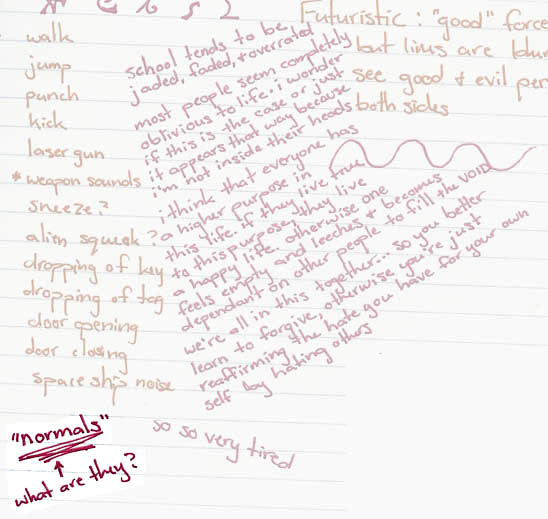 Futuristic: "good" force
but lines are blur
see good & evil per
both sides
walk
jump
punch
kick
laser gun
* weapon sounds
sneeze?
alien squeak?
dropping of key
dropping of tag
door opening
door closing
space ship noise
school tends to be
jaded, faded, & overrated
most people seem completely
oblivious to life. i wonder
if this is the case or just
it appears that way because
i'm not inside their heads
i think that everyone has
a higher purpose in
this life. if they live true
to this purpose, they live
a happy life. otherwise one
feels empty and leeches & becomes
dependant on other people to fill the void
we're all in this together... so you better
learn to forgive, otherwise you're just
reaffirming the hate you have for your own
self by hating others
so so very tired
"normals"
what are they?